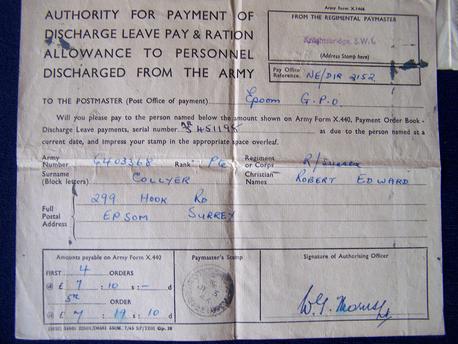 Army Form X.1466
AUTHORITY FOR PAYMENT OF
DISCHARGE LEAVE PAY & RATION
ALLOWANCE TO PERSONNEL
DISCHARGED FROM THE ARMY
FROM THE REGIMENTAL PAYMASTER
Knightsbridge, S.W.1.
(Address Stamp here)
Pay Office
Reference. NE/DIR 2152
TO THE POSTMASTER (Post Office of payment) Epsom G.P.O.
Will you please pay to the person named below the amount shown on Army Form X.440, Payment Order Book -
Discharge Leave payments, serial number 451195 as due to the person named at a
current date, and impress your stamp in the appropriate space overleaf.
Army
Number 6403368 Rank Pte Regiment
or Corps R/Sussex
Surname
(Block letters) COLLYER Christian
Names ROBERT EDWARD
Full
Postal
Address 299 HOOK RD
EPSOM SURREY
Amounts payable on Army Form X.440
FIRST 4 ORDERS
@ £ 7 : 10 s : - d
5th ORDER
@ £ 7 19 s 10 d
Paymaster's Stamp
Signature of Authorising Officer